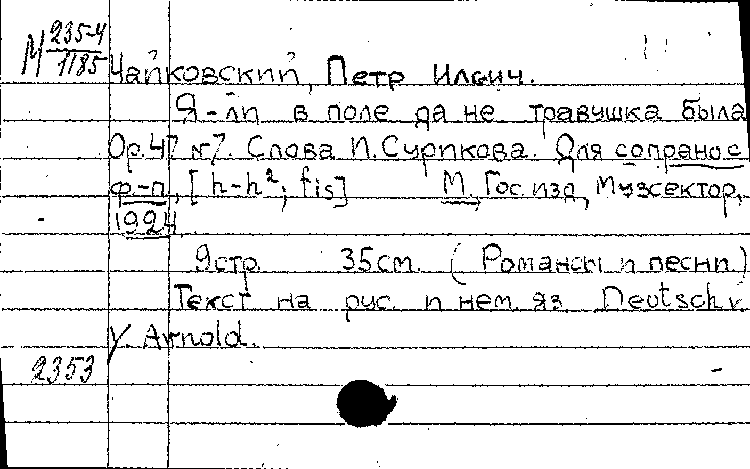 М 235-4
1185
Чайковский, Петр Ильич.
Я-ли в поле да не травушка была
Op.47 №7. Слова И.Сурикова. Для сопрано с
ф-п, [h-h²; fis] М., Гос.изд, Музсектор,
1924.
9стр. 35см. (Романсы и песни)
Текст на рус. и нем. яз Deutsch v.
Y. Arnold.
2353